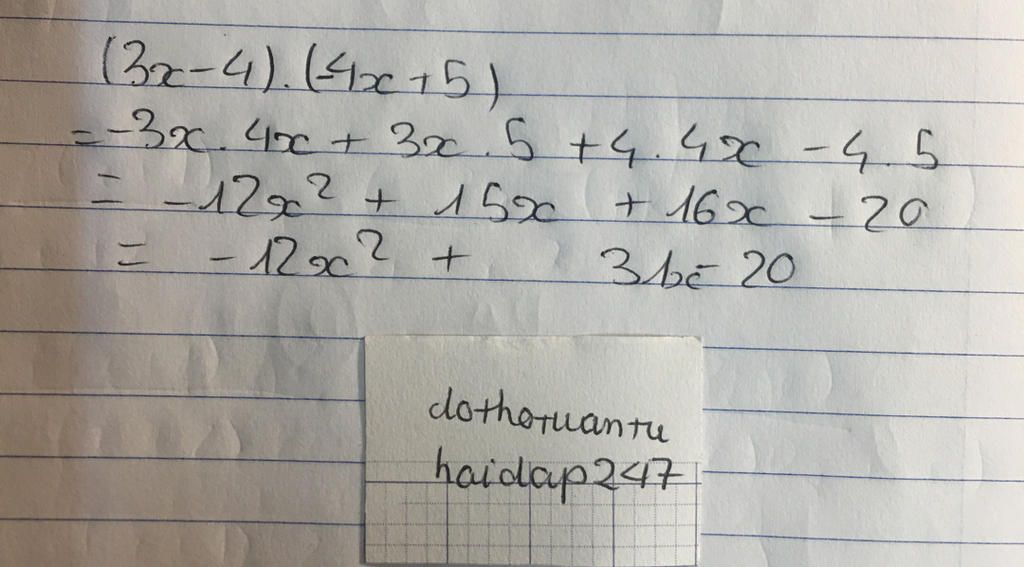 (3x-4).(-4x+5)
=-3x.4x+3x.5+4.4x-4.5
= -12x²+15x+16x-20
= -12x²+ 31x-20
dothotuantu
haidap247